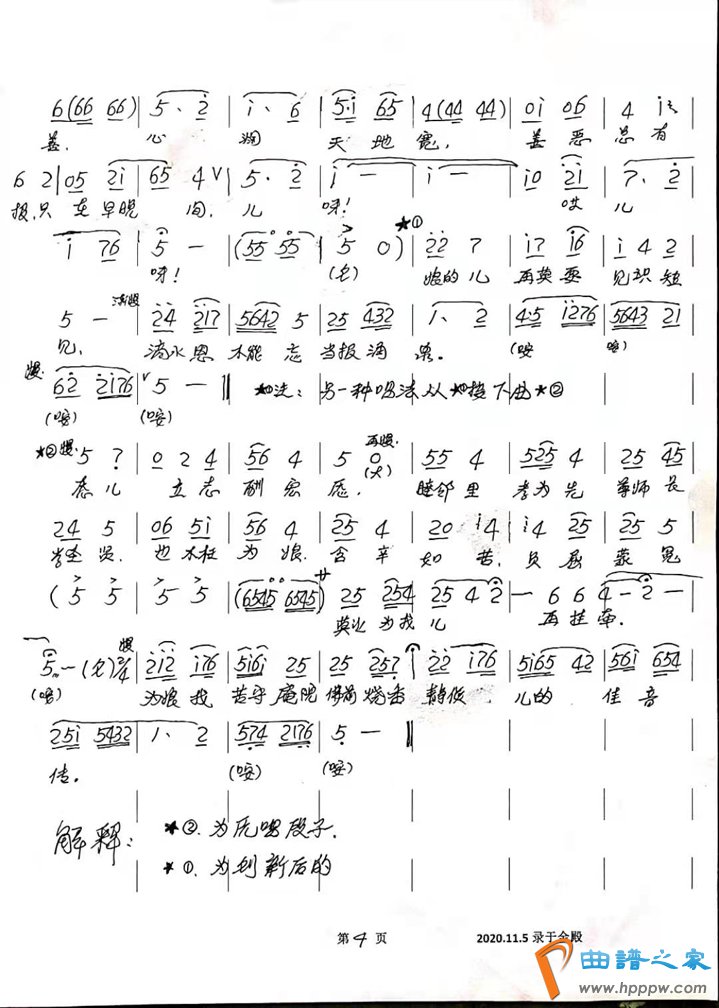 6(66 66) | 5、2 | i、6 | 5·i 65 | 4(44 44) | 0i 06 | 4 i
善. 心 天地宽. 善恶总有
6 2 | 05 2i | 65 4 V | 5、2 | i — | i — | i0 2i | 7、2
报,只在早晚 间, 儿 呀! 哎 儿
i 76 | 5 — | (55 55 | 5 0) | 22 7 | i7 i6 | i 4 2
呀! 娘的儿 再莫要 见识短
5 — | 24 217 | 5642 5 | 25 432 | 1、2 | 4·5 i276 | 5643 21
见, 滴水恩 不能忘 当报涌 泉。 (咹 咹)
慢. 62 2176 | 5 — ‖ ★①注: 另一种唱法从★①接下曲★②
(咹) (咹)
★②慢. 5 7 | 0 2 4 | 56 4 | 5 0 | 55 4 | 525 4 | 25 45
再慢.
(大)
儿 立志 酬宏 愿. 睦邻里 孝为先 尊师长
24 5 | 06 5i | 56 4 | 25 4 | 20 i4 | i4 25 | 25 5
也不枉 为娘. 含辛 如苦. 负屈 蒙冤
(5 5 | 5 5 | (6545 6545) 25 254 | 25 4 2 | — 6 6 4 — 2 —
莫必为我儿 再挂牵.
5 — 2/4 | 212 i76 | 5i6i 25 | 25 257 | 22 i76 | 5i65 42 | 56i 654
慢
为娘我 苦守庵院 佛前烧香 静候. 儿的 佳音
25i 5432 | 1、2 | 574 2176 | 5 — ‖
传。 (咹) (咹)
解释: ★②.为原唱段子.
★①.为创新后的
第 4 页 2020.11.5 录于金殿
曲谱之家
www.hppw.com